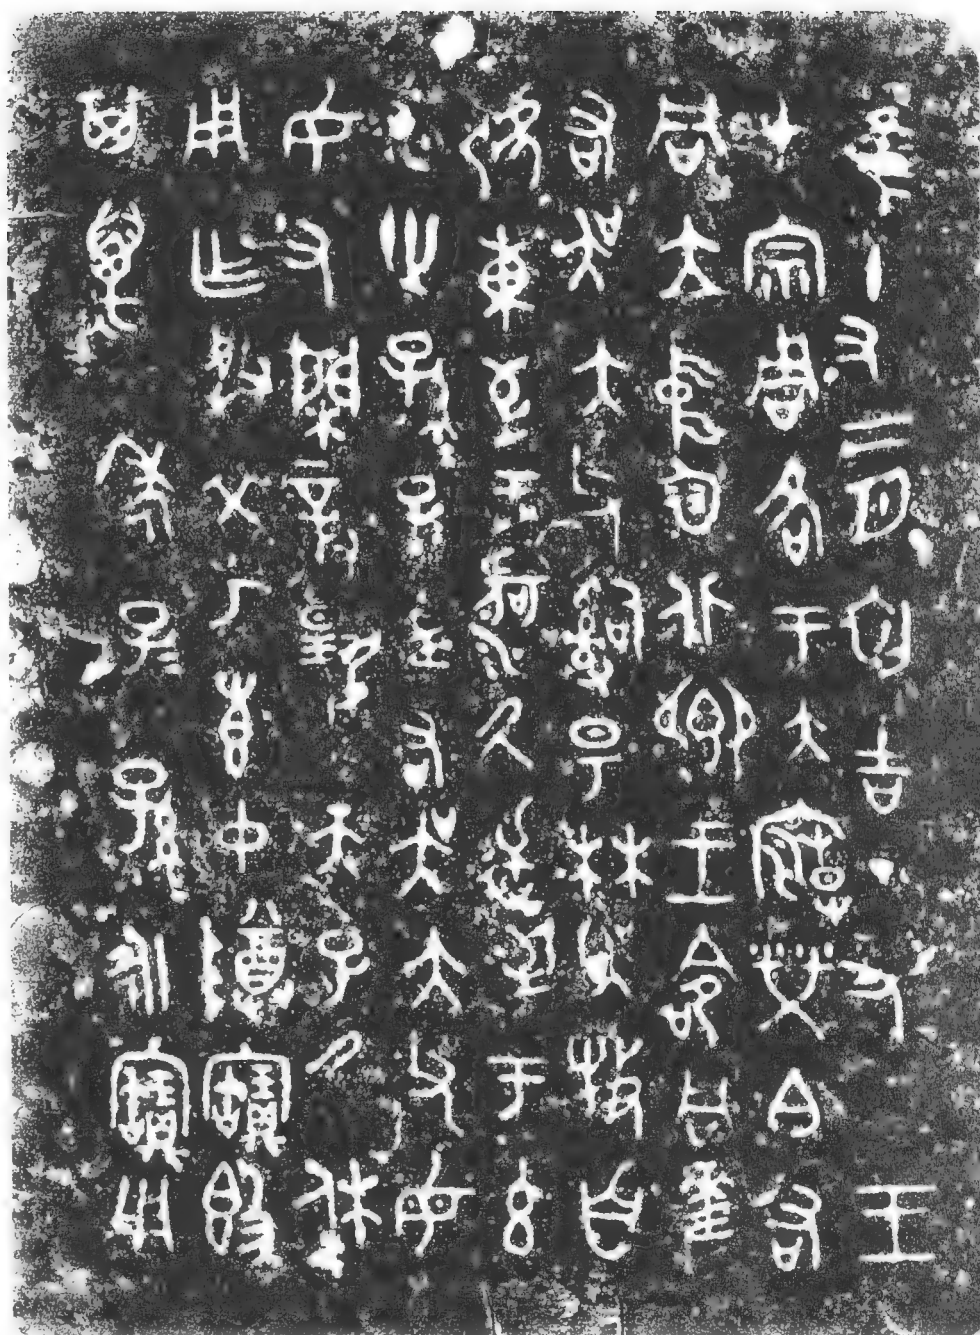 隹十又二月初吉丁丑王
才宗周各于大廟𤇾白右
同立中廷北鄉王命同差
右吳大父𤔲昜林吳牧自
淲東至于河氒逆至于玄
水世孫孫子子差右吳大父毋
女又閑對揚天子氒休
用乍朕文考叀中尊寶簋
其萬年子子孫孫永寶用